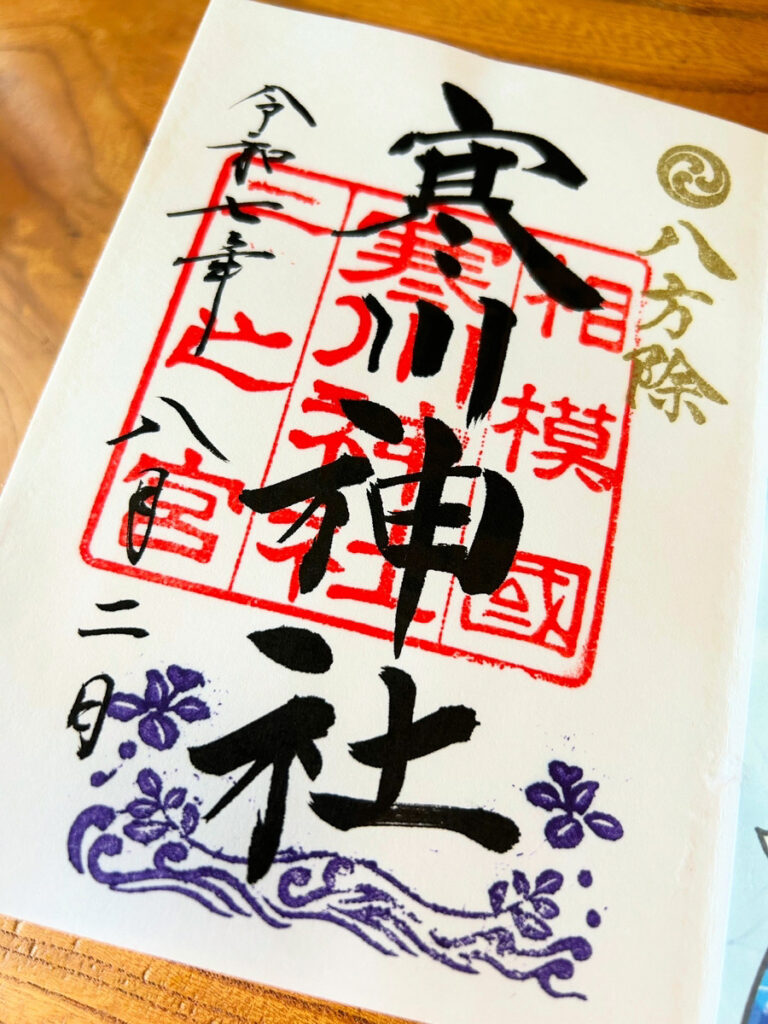 八方除
相模國
寒川神社
一之宮
寒川神社
令和七年
八月二日